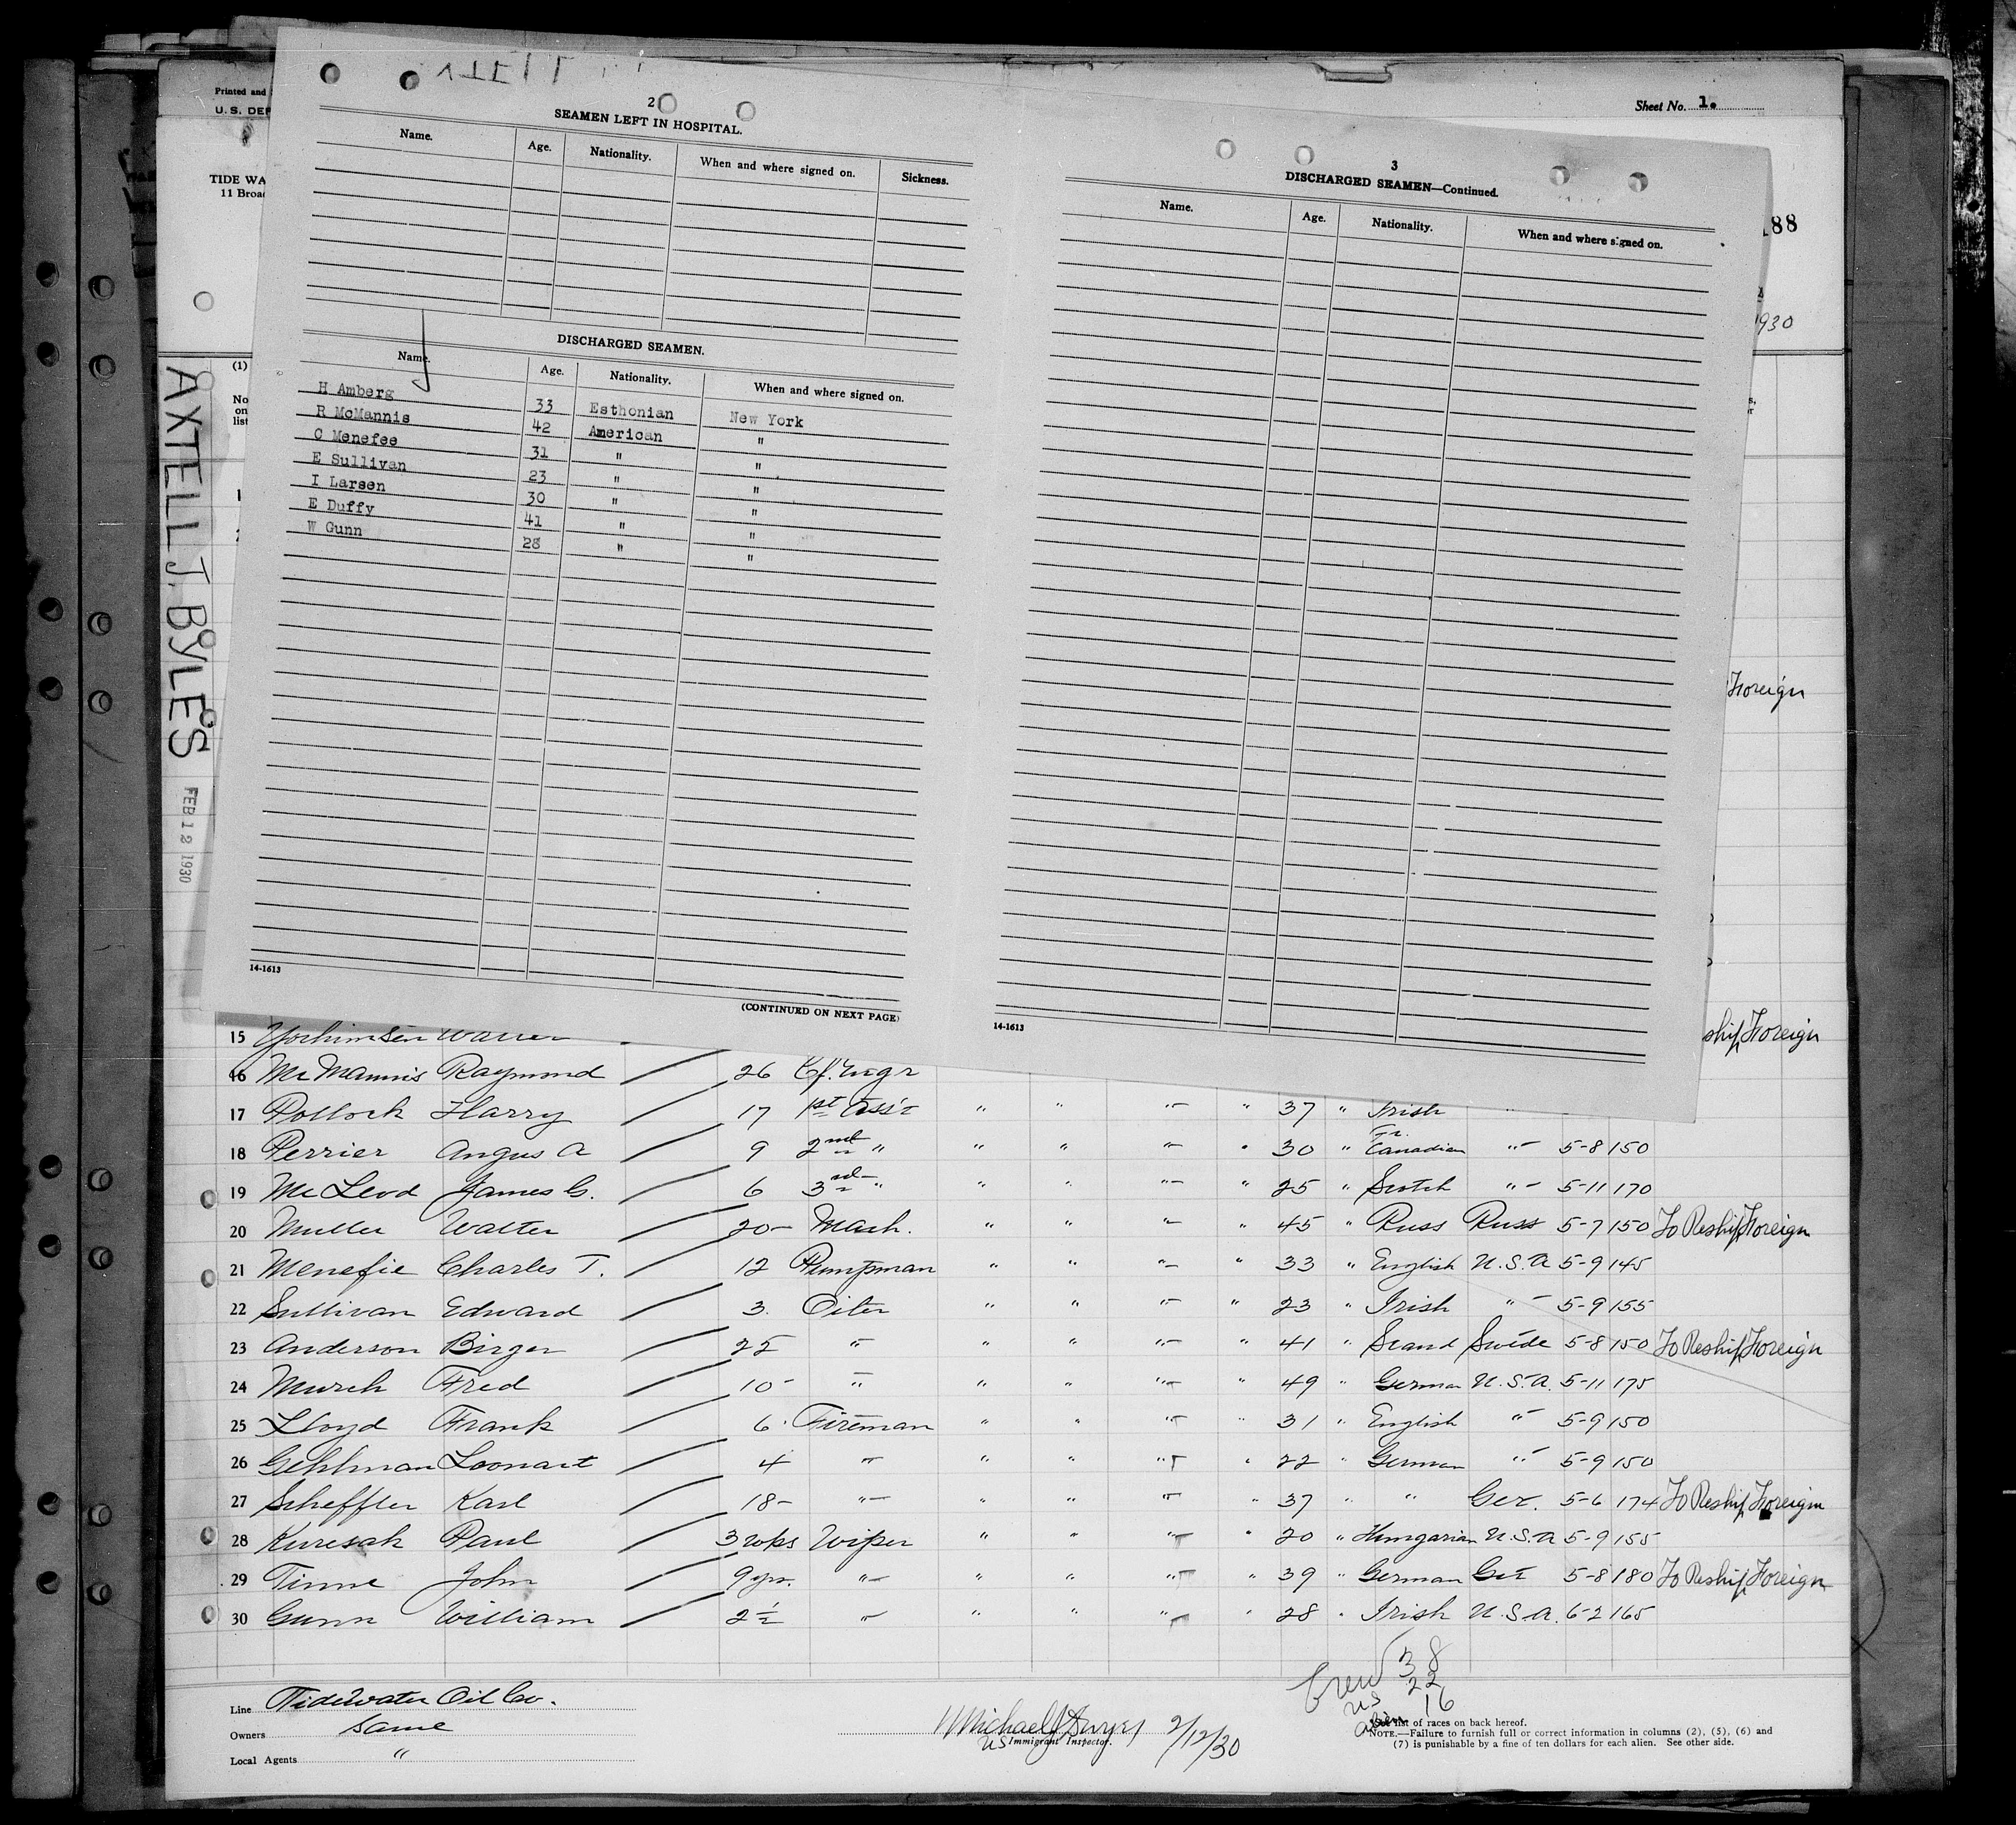 Printed and
U. S. DEP
TIDE WA
11 Broad
Sheet No. 1.
188
1930
(1)
No
on
list
AXTELL J. BYLES
FEB 12 1930
2
SEAMEN LEFT IN HOSPITAL.
Name. Age. Nationality. When and where signed on. Sickness.
DISCHARGED SEAMEN.
Name. Age. Nationality. When and where signed on.
H Amberg 33 Esthonian New York
R McMannis 42 American "
C Menefee 31 " "
E Sullivan 23 " "
I Larsen 30 " "
E Duffy 41 " "
W Gunn 28 " "
14-1613
(CONTINUED ON NEXT PAGE)
3
DISCHARGED SEAMEN—Continued.
Name. Age. Nationality. When and where signed on.
14-1613
Foreign
15 Yochimsen Warren ship Foreign
16 McMannis Raymond 26 Cf. Engr
17 Pollock Harry 17 1st Ass't " " " " 37 " Irish
18 Perrier Angus A 9 2nd " " " " " 30 " Fr. Canadian " 5-8 150
19 McLeod James G. 6 3rd " " " " " 25 " Scotch " 5-11 170
20 Muller Walter 20 Mach. " " " " 45 " Russ Russ 5-7 150 To Reship Foreign
21 Menefie Charles T. 12 Pumpman " " " " 33 " English U.S.A 5-9 145
22 Sullivan Edward 3 Oiler " " " " 23 " Irish " 5-9 155
23 Anderson Birger 22 " " " " " 41 " Scand Swede 5-8 150 To Reship Foreign
24 Murch Fred 10 " " " " " 49 " German U.S.A. 5-11 175
25 Lloyd Frank 6 Fireman " " " " 31 " English " 5-9 150
26 Gehlman Leonart 4 " " " " " 22 " German " 5-9 150
27 Scheffler Karl 18 " " " " " 37 " " Ger. 5-6 174 To Reship Foreign
28 Kuresak Paul 3 wks Wiper " " " " 20 " Hungarian U.S.A 5-9 155
29 Tinne John 9 yrs. " " " " " 39 " German Ger 5-8 180 To Reship Foreign
30 Gunn William 2½ " " " " " 28 " Irish U.S.A. 6-2 165
Crew 38
US 22
Alien 16
Line Tidewater Oil Co.
Owners Same
Local Agents "
Michael J Dwyer 2/12/30
US Immigrant Inspector.
list of races on back hereof.
NOTE.—Failure to furnish full or correct information in columns (2), (5), (6) and
(7) is punishable by a fine of ten dollars for each alien. See other side.